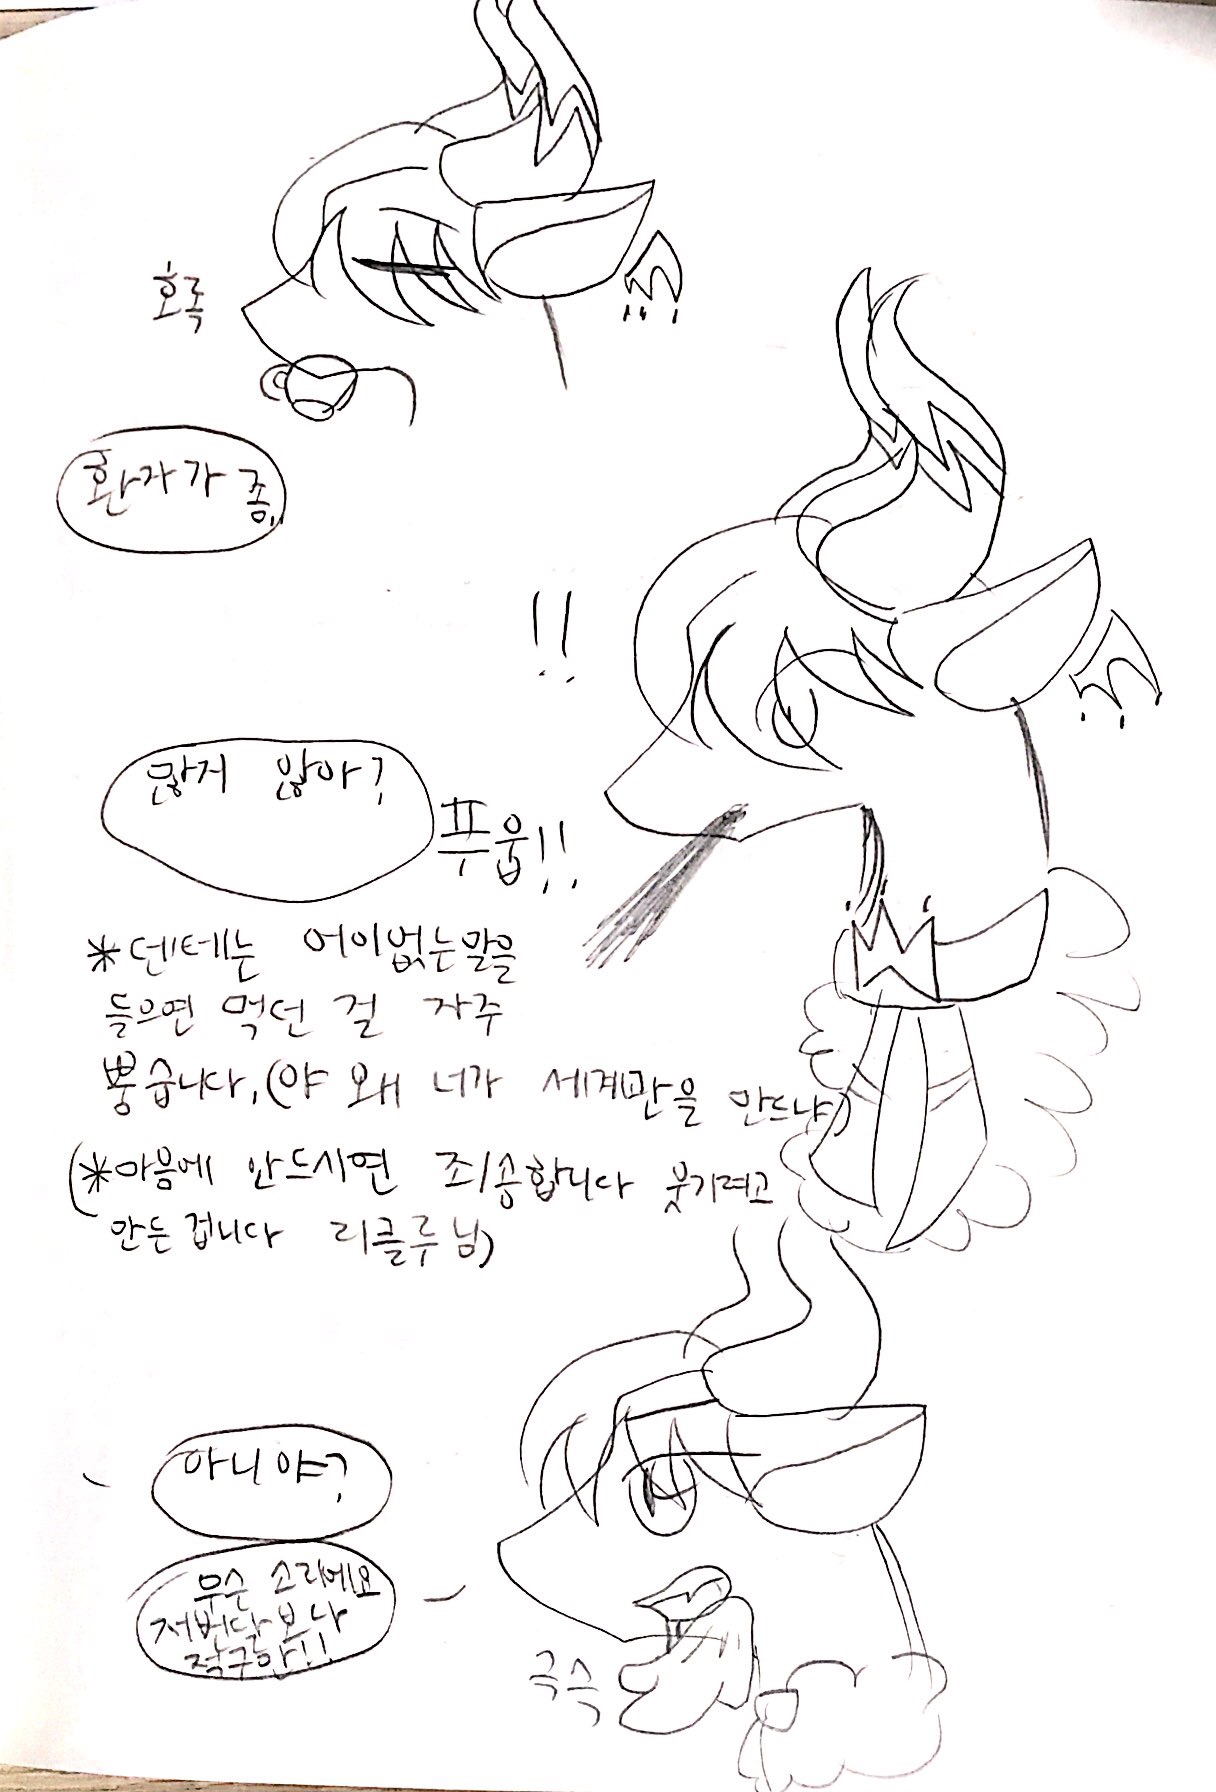 호록
환자가 좀,,
!!
많지 않아?
푸웁!!
*덴테는 어이없는말을
들으면 먹던 걸 자주
뿜습니다,(야 왜 너가 세계관을 만드냐)
(*마음에 안드시면 죄송합니다 웃기려고
만든겁니다 리클루님)
아니야?
무슨 소리에요
저번달보나
적구만!!
극슥